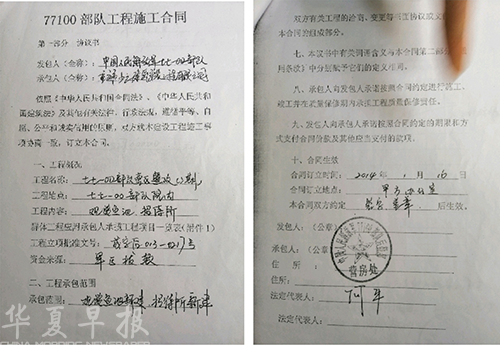 77100 部队工程施工合同
第一部分 协议书
发包人（全称）：中国人民解放军七七一00部队
承包人（全称）：
依照《中华人民共和国合同法》、《中华人民共和
国建筑法》及其他有关法律、行政法规，遵循平等、自
愿、公平和诚实信用的原则，双方就本建设工程施工事
项协商一致，订立本合同。
一、工程概况
工程名称：七七一00部队营区整改
工程地点：七七一00部队院内
工程内容：观赏鱼池、招待所
群体工程应附承包人承揽工程项目一览表（附件 1）
工程立项批准文号：
资金来源：军区拨款
二、工程承包范围
承包范围：
华夏早报
CHINA MORNING NEWSPAPER
双方有关工程的洽商、变更等书面协议或文
本合同的组成部分。
七、本协议书中有关词语含义与本合同第二部分
用条款》中分别赋予它们的定义相同。
八、承包人向发包人承诺按照合同约定进行施工、
竣工并在质量保修期内承担工程质量保修责任。
九、发包人向承包人承诺按照合同约定的期限和方
式支付合同价款及其他应当支付的款项。
十、合同生效
合同订立时间：2014 年 1 月 16 日
合同订立地点：甲方办公室
本合同双方约定 签字盖章 后生效。
发包人：（公章）
承包人：（公章）
住所：
住所：
法定代表人：
法定代表人：
营房处